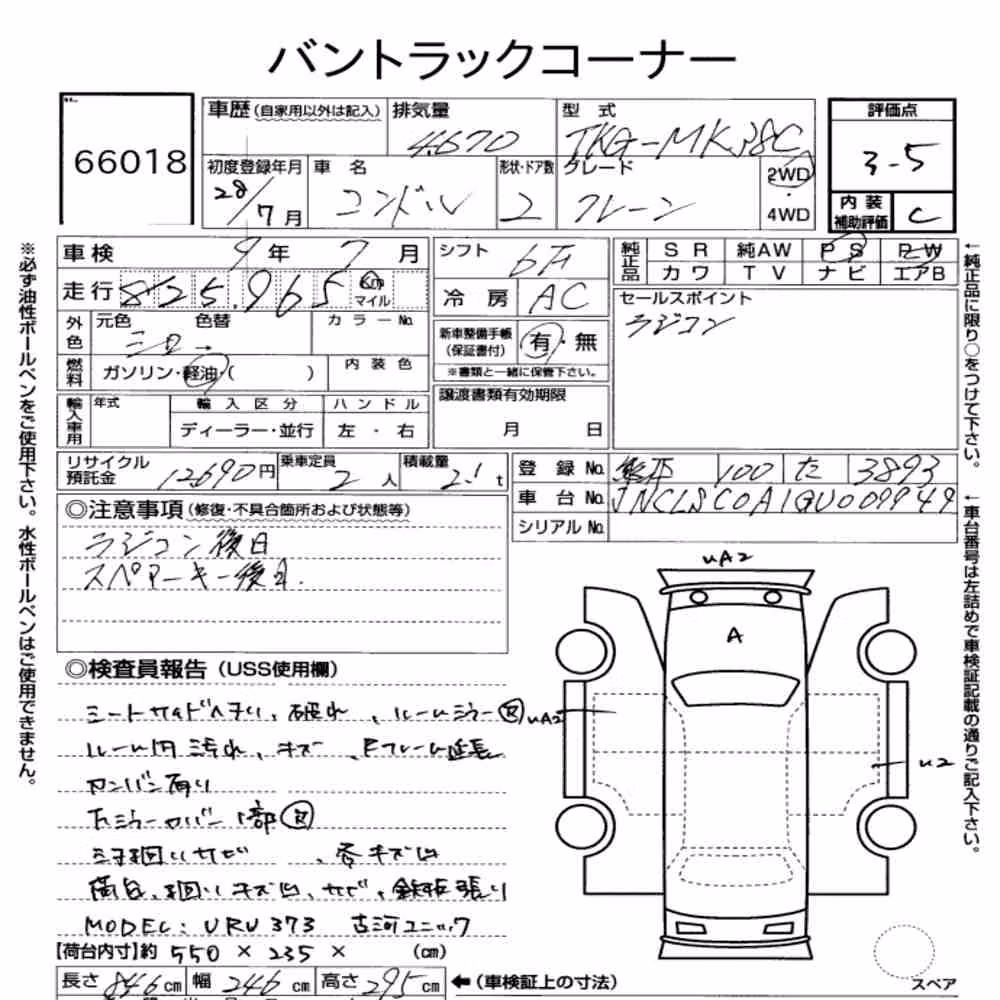 バントラックコーナー
66018
車歴(自家用以外は記入) 排気量 型式 評価点
4670 TKG-MK38C 3-5
初度登録年月 車名 形状・ドア数 グレード 2WD
28/7月 コンドル 2 クレーン 4WD
内装補助評価 C
車検 9年7月 シフト 6F
純正品 SR 純AW PS PW
カワ TV ナビ エアB
走行 825,965 Km マイル 冷房 AC
セールスポイント
ラジコン
外色 元色 色替 カラーNo.
シロ→
新車整備手帳(保証書付) 有・無
※書類と一緒に保管下さい。
燃料 ガソリン・軽油・( ) 内装色
譲渡書類有効期限
月 日
輸入車用 年式 輸入区分 ハンドル
ディーラー・並行 左・右
リサイクル預託金 12,690円 乗車定員 2人 積載量 2.1t
登録No. 熊本 100 た 3893
車台No. JNCLSC0A1GU009949
シリアルNo.
◎注意事項(修復・不具合箇所および状態等)
ラジコン後日
スペアーキー後日.
◎検査員報告(USS使用欄)
シートサイドヘタリ、破れ、ルームミラー
ルーム内汚れ、キズ、Fフレーム延長
カンバン有り
下ミラーカバー 1部
シタ廻りサビ、各キズ凹
荷台廻りキズ凹、サビ、鉄板張り
MODEL: URU373 古河ユニック
【荷台内寸】約 550 × 235 × (cm)
長さ 846cm 幅 246cm 高さ 295cm ←(車検証上の寸法)
UA2
A
UA2
U2
スペア
※必ず油性ボールペンをご使用下さい。水性ボールペンはご使用できません。
←純正品に限り○をつけて下さい。
←車台番号は左詰めで車検証記載の通りご記入下さい。